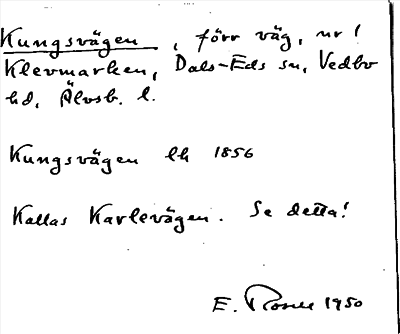 Kungsvägen, förr väg, nr 1
Klevmarken, Dals-Eds sn, Vedbo
hd, Älvsb. l.
Kungsvägen lk 1856
Kallas Karlevägen. Se detta!
E. 1950